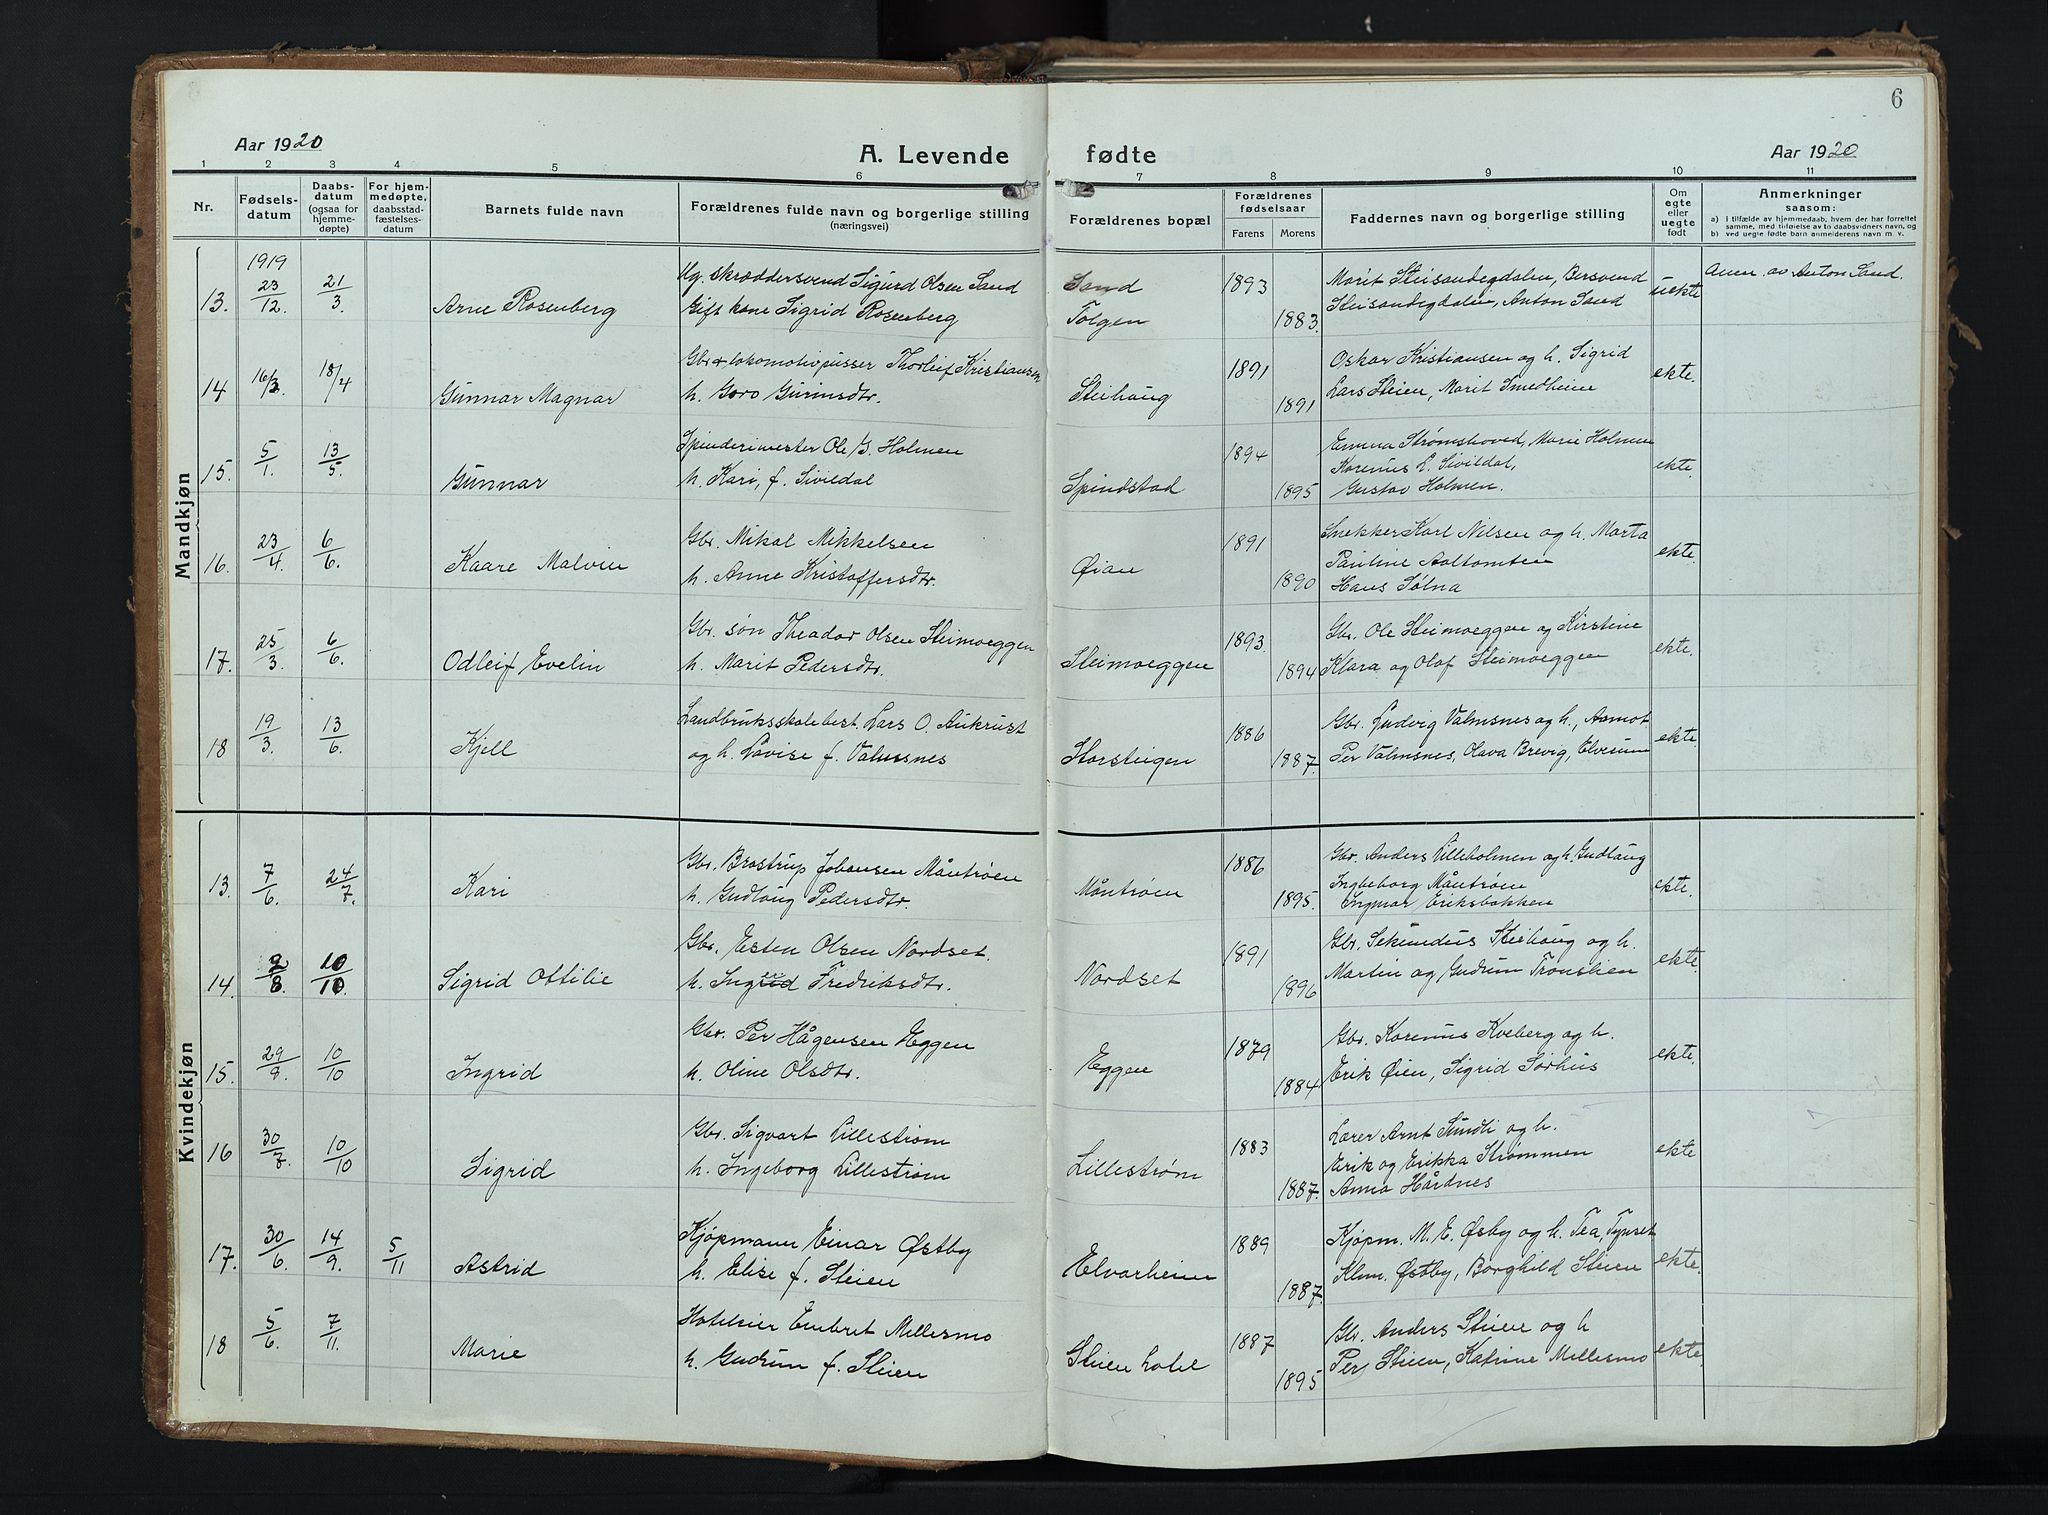 6
Aar 1920
A. Levende fødte
Aar 1920
1 2 3 4 5 6 7 8 9 10 11
Nr.
Fødsels-
datum
Daabs-
datum
(ogsaa for
hjemme-
døpte)
For hjem-
medøpte,
daabsstad-
fæstelses-
datum
Barnets fulde navn
Forældrenes fulde navn og borgerlige stilling
(næringsvei)
Forældrenes bopæl
Forældrenes
fødselsaar
Farens Morens
Faddernes navn og borgerlige stilling
Om
egte
eller
uegte
født
Anmerkninger
saasom:
a) i tilfælde av hjemmedaab, hvem der har forrettet
samme, med tilføielse av to daabsvidners navn, og
b) ved uegte fødte barn anmelderens navn m. v.
Mandkjøn
1919
13. 23/12. 21/3. Arne Rosenberg
Ug. skræddersvend Sigurd Olsen Sand
Gift kone Sigrid Rosenberg
Sand
Tolgen
1893 1883.
Marit Steisandegdalen, Bersvend
Steisandegdalen, Anton Sand
uekte
Anm. av Anton Sand.
14 16/3. 18/4 Gunnar Magnar
Gbr. + lokomotivpusser Thorleif Kristiansen
h. Goro Gurinsdtr.
Steihaug
1891 1891
Oskar Kristiansen og h. Sigrid
Lars Steien, Marit Smedheim
ekte.
15. 5/1. 13/5. Gunnar
Spinderimester Ole G. Holmen
h. Kari, f. Sivildal
Spindstad
1894 1895
Emma Strømshoved, Marie Holmen
Karenus L. Sivildal,
Gustav Holmen.
ekte.
16. 23/4. 6/6. Kaare Malvin
Gbr. Mikal Mikkelsen
h. Anne Kristoffersdtr.
Øian
1891 1890
Snekker Karl Nilsen og h. Marta
Pauline Aaltomten
Hans Sølna
ekte.
17. 25/3. 6/6. Odleif Evelin
Gbr. søn Theodor Olsen Steimoeggen
h. Marit Pedersdtr.
Steimoeggen
1893. 1894
Gbr. Ole Steimoeggen og Kirstine
Klara og Olaf Steimoeggen
ekte.
18 19/3. 13/6. Kjell
Landbruksskolebest. Lars O. Aukrust
og h. Lovise f. Valmsnes
Storsteigen
1886 1887.
Gbr. Ludvig Valmsnes og h., Aamot
Per Valmsnes, Olava Brevig, Elverum
ekte.
Kvindekjøn
13. 7/6. 24/7. Kari
Gbr. Brostrup Johansen Måntrøen
h. Gudlaug Pedersdtr.
Måntrøen
1886 1895.
Gbr. Anders Lilleholmen og h. Gudlaug
Ingbeborg Måntrøen
Ingmar Eriksbakken
ekte.
14. 2/8. 10/10. Sigrid Ottilie
Gbr. Esten Olsen Nordset.
h. Ingrid Fredriksdtr.
Nordset
1891 1896
Gbr. Sekundus Steihaug og h.
Martin og Gudrun Tronslien
ekte.
15. 29/9. 10/10 Ingrid
Gbr. Per Hågensen Eggen
h. Oline Olsdtr.
Eggen
1879 1884
Gbr. Karenus Kveberg og h.
Erik Øien, Sigrid Sørhus
ekte.
16 30/7. 10/10 Sigrid
Gbr. Sigvart Lillestrøm
h. Ingeborg Lillestrøm
Lillestrøm
1883 1887.
Lærer Arnt Sundli og h.
Erik og Erikka Strømmen
Anna Hårdnes
ekte
17. 30/6. 14/9. 5/11 Astrid
Kjøpmann Einar Østby
h. Elise f. Steien
Elvarheim
1889 1887.
Kjøpm. M. E. Øsby og h. Tea, Tynset
Klem. Østby, Borghild Steien
ekte.
18 5/6. 7/11. Marie
Hoteleier Embret Mellesmo
h. Gudrun f. Steien
Steien hotel
1887 1895
Gbr. Anders Steien og h
Per Steien, Katrine Mellesmo
ekte